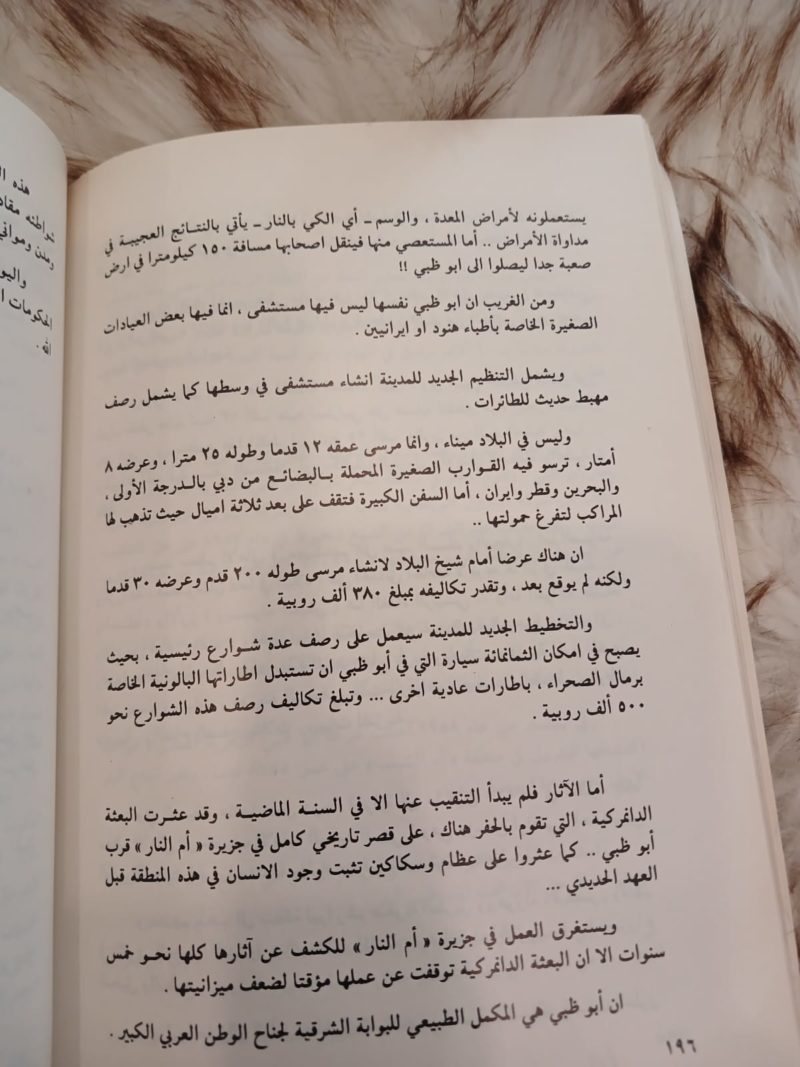 يستعملونه لأمراض المعدة ، والوسم ــ أي الكي بالنار ــ يأتي بالنتائج العجيبة في
مداواة الأمراض .. أما المستعصي منها فينقل اصحابها مسافة ١٥٠ كيلومترا في ارض
صعبة جدا ليصلوا الى ابو ظبي !!
ومن الغريب ان ابو ظبي نفسها ليس فيها مستشفى ، انما فيها بعض العيادات
الصغيرة الخاصة بأطباء هنود او ايرانيين .
ويشمل التنظيم الجديد للمدينة انشاء مستشفى في وسطها كما يشمل رصف
مهبط حديث للطائرات .
وليس في البلاد ميناء ، وانما مرسى عمقه ١٢ قدما وطوله ٢٥ مترا ، وعرضه ٨
أمتار ، ترسو فيه القوارب الصغيرة المحملة بالبضائع من دبي بالدرجة الأولى ،
والبحرين وقطر وايران ، أما السفن الكبيرة فتقف على بعد ثلاثة اميال حيث تذهب لها
المراكب لتفرغ حمولتها ..
ان هناك عرضا أمام شيخ البلاد لانشاء مرسى طوله ٢٠٠ قدم وعرضه ٣٠ قدما
ولكنه لم يوقع بعد ، وتقدر تكاليفه بمبلغ ٣٨٠ ألف روبية .
والتخطيط الجديد للمدينة سيعمل على رصف عدة شوارع رئيسية ، بحيث
يصبح في امكان الثمانمائة سيارة التي في أبو ظبي ان تستبدل اطاراتها البالونية الخاصة
برمال الصحراء ، باطارات عادية اخرى ... وتبلغ تكاليف رصف هذه الشوارع نحو
٥٠٠ ألف روبية .
أما الآثار فلم يبدأ التنقيب عنها الا في السنة الماضية ، وقد عثرت البعثة
الدانمركية ، التي تقوم بالحفر هناك ، على قصر تاريخي كامل في جزيرة « أم النار » قرب
أبو ظبي .. كما عثروا على عظام وسكاكين تثبت وجود الانسان في هذه المنطقة قبل
العهد الحديدي ...
ويستغرق العمل في جزيرة « أم النار » للكشف عن آثارها كلها نحو خمس
سنوات الا ان البعثة الدانمركية توقفت عن عملها مؤقتا لضعف ميزانيتها .
ان أبو ظبي هي المكمل الطبيعي للبوابة الشرقية لجناح الوطن العربي الكبير .
١٩٦
هذه
شواطئه
ومدن
الحكومات
الله .